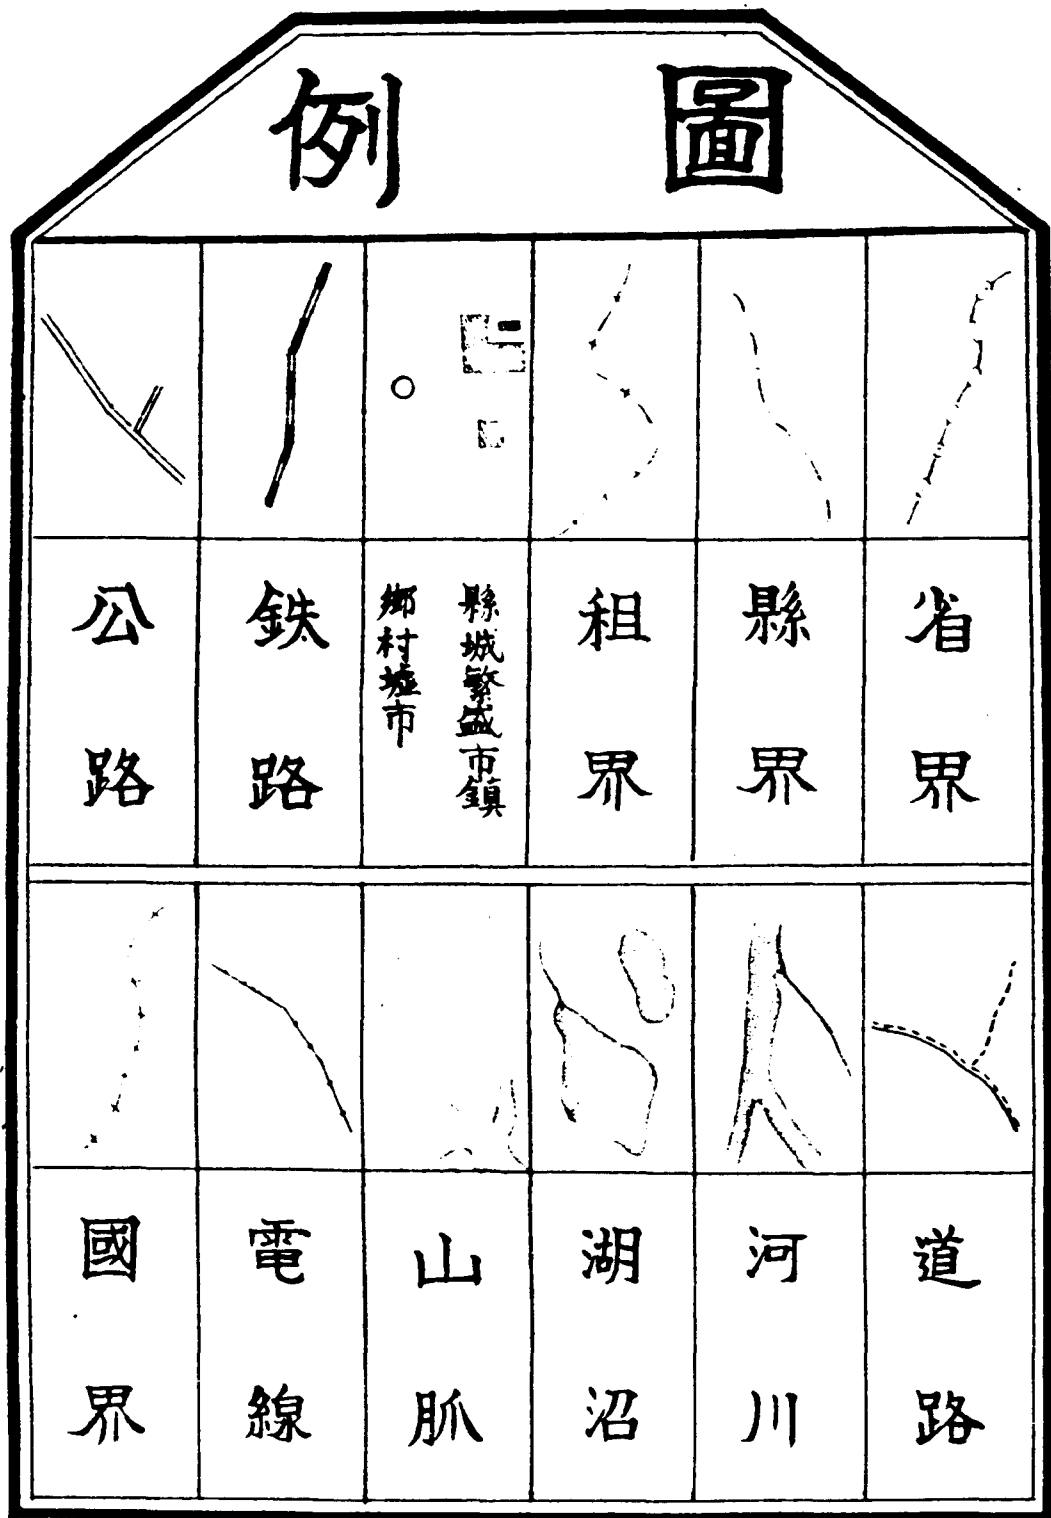 圖例
省界
縣界
租界
縣城繁盛市鎮
鄉村墟市
鉄路
公路
道路
河川
湖沼
山脈
電線
國界